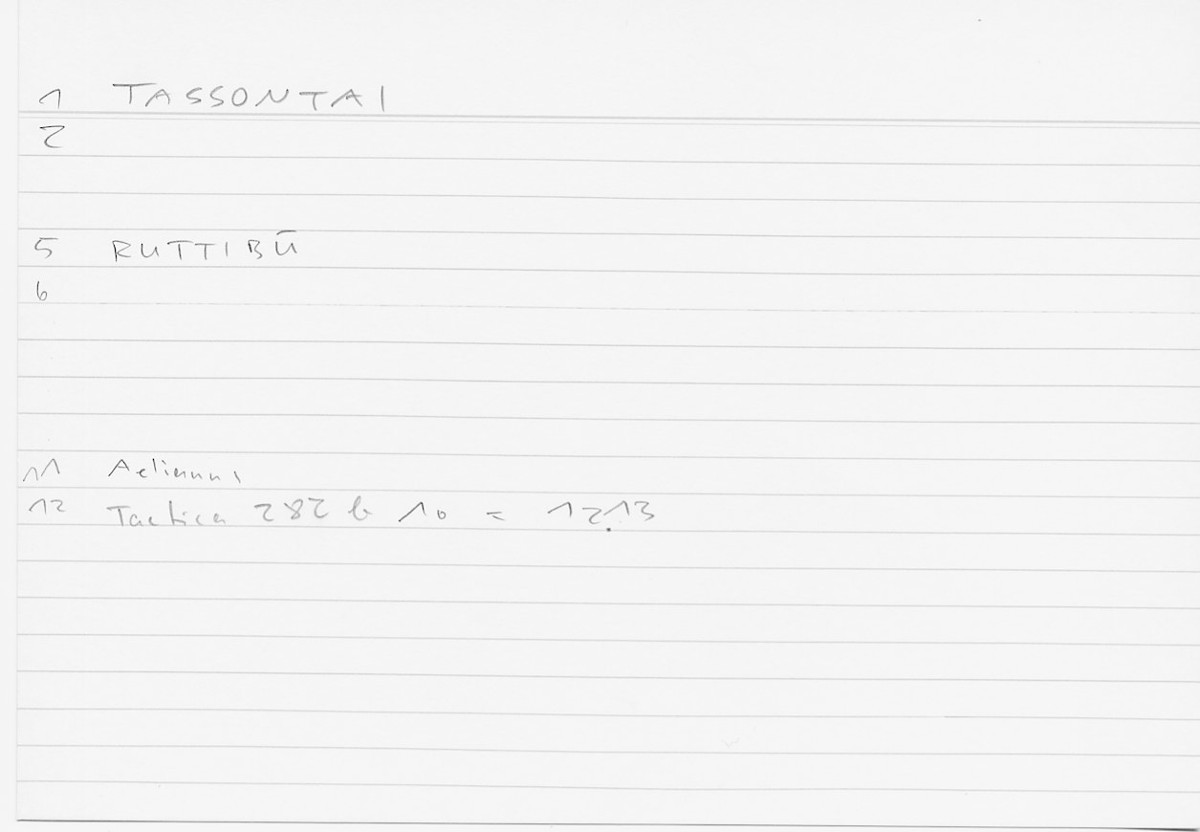 1 TASSONTAI
2
5 RUTTIBŪ
6
11 Aelianus
12 Tactica 282 b 10 = 1213